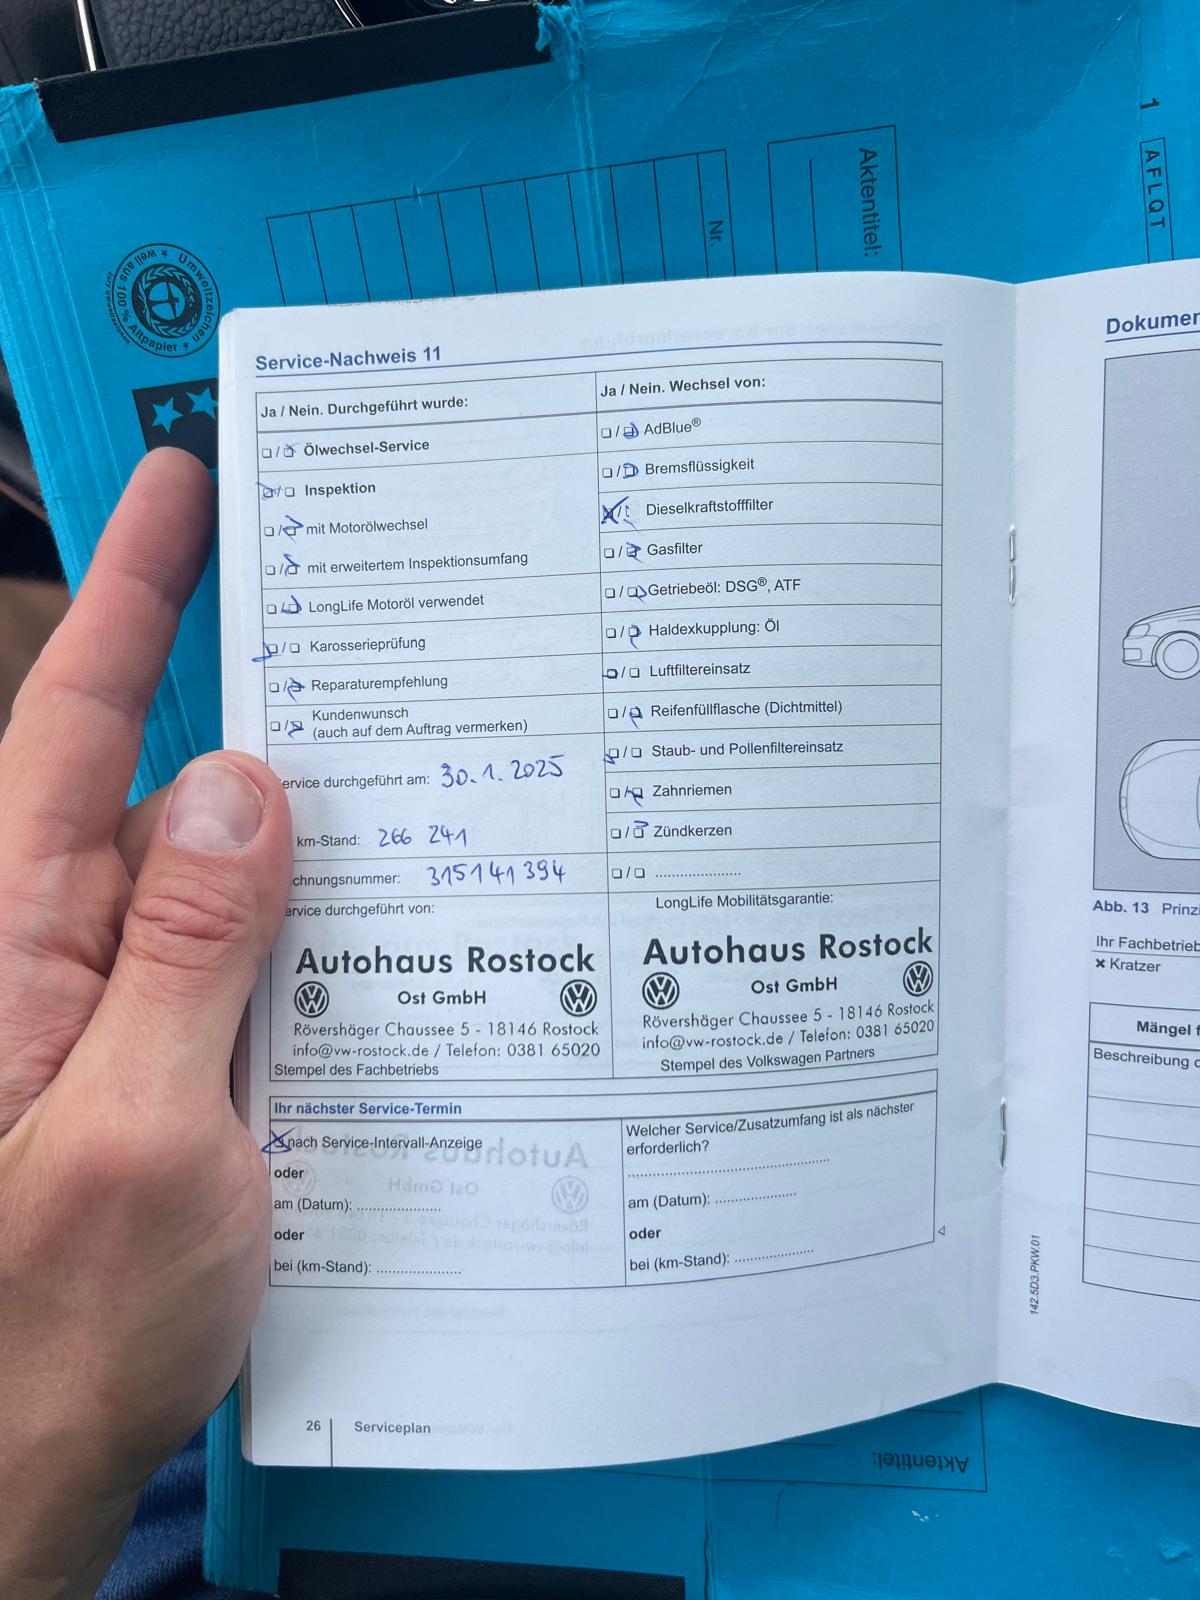 1
AFLQT
Aktentitel:
Nr.
Umweltzeichen
weil aus 100 % Altpapier
Jury Umweltzeichen
Service-Nachweis 11
Ja / Nein. Durchgeführt wurde:
☐ / ☐ Ölwechsel-Service
☐ / ☐ Inspektion
☐ / ☐ mit Motorölwechsel
☐ / ☐ mit erweitertem Inspektionsumfang
☐ / ☐ LongLife Motoröl verwendet
☐ / ☐ Karosserieprüfung
☐ / ☐ Reparaturempfehlung
☐ / ☐ Kundenwunsch
(auch auf dem Auftrag vermerken)
ervice durchgeführt am: 30.1.2025
km-Stand: 266 241
chnungsnummer: 315141394
ervice durchgeführt von:
Autohaus Rostock
Ost GmbH
Rövershäger Chaussee 5 - 18146 Rostock
info@vw-rostock.de / Telefon: 0381 65020
Stempel des Fachbetriebs
Ja / Nein. Wechsel von:
☐ / ☐ AdBlue®
☐ / ☐ Bremsflüssigkeit
☐ / ☐ Dieselkraftstofffilter
☐ / ☐ Gasfilter
☐ / ☐ Getriebeöl: DSG®, ATF
☐ / ☐ Haldexkupplung: Öl
☐ / ☐ Luftfiltereinsatz
☐ / ☐ Reifenfüllflasche (Dichtmittel)
☐ / ☐ Staub- und Pollenfiltereinsatz
☐ / ☐ Zahnriemen
☐ / ☐ Zündkerzen
☐ / ☐ .....................
LongLife Mobilitätsgarantie:
Autohaus Rostock
Ost GmbH
Rövershäger Chaussee 5 - 18146 Rostock
info@vw-rostock.de / Telefon: 0381 65020
Stempel des Volkswagen Partners
Ihr nächster Service-Termin
☐ nach Service-Intervall-Anzeige
oder
am (Datum): .....................
oder
bei (km-Stand): .....................
Welcher Service/Zusatzumfang ist als nächster
erforderlich?
..................................................
am (Datum): ....................
oder
bei (km-Stand): ....................
26 Serviceplan
142.5D3.PKW.01
Dokumen
Abb. 13 Prinzi
Ihr Fachbetrieb
× Kratzer
Mängel f
Beschreibung d
Aktentitel: